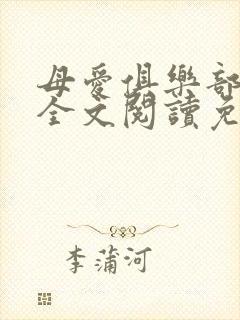 母愛俱樂部
全文閱讀免
李蒲河